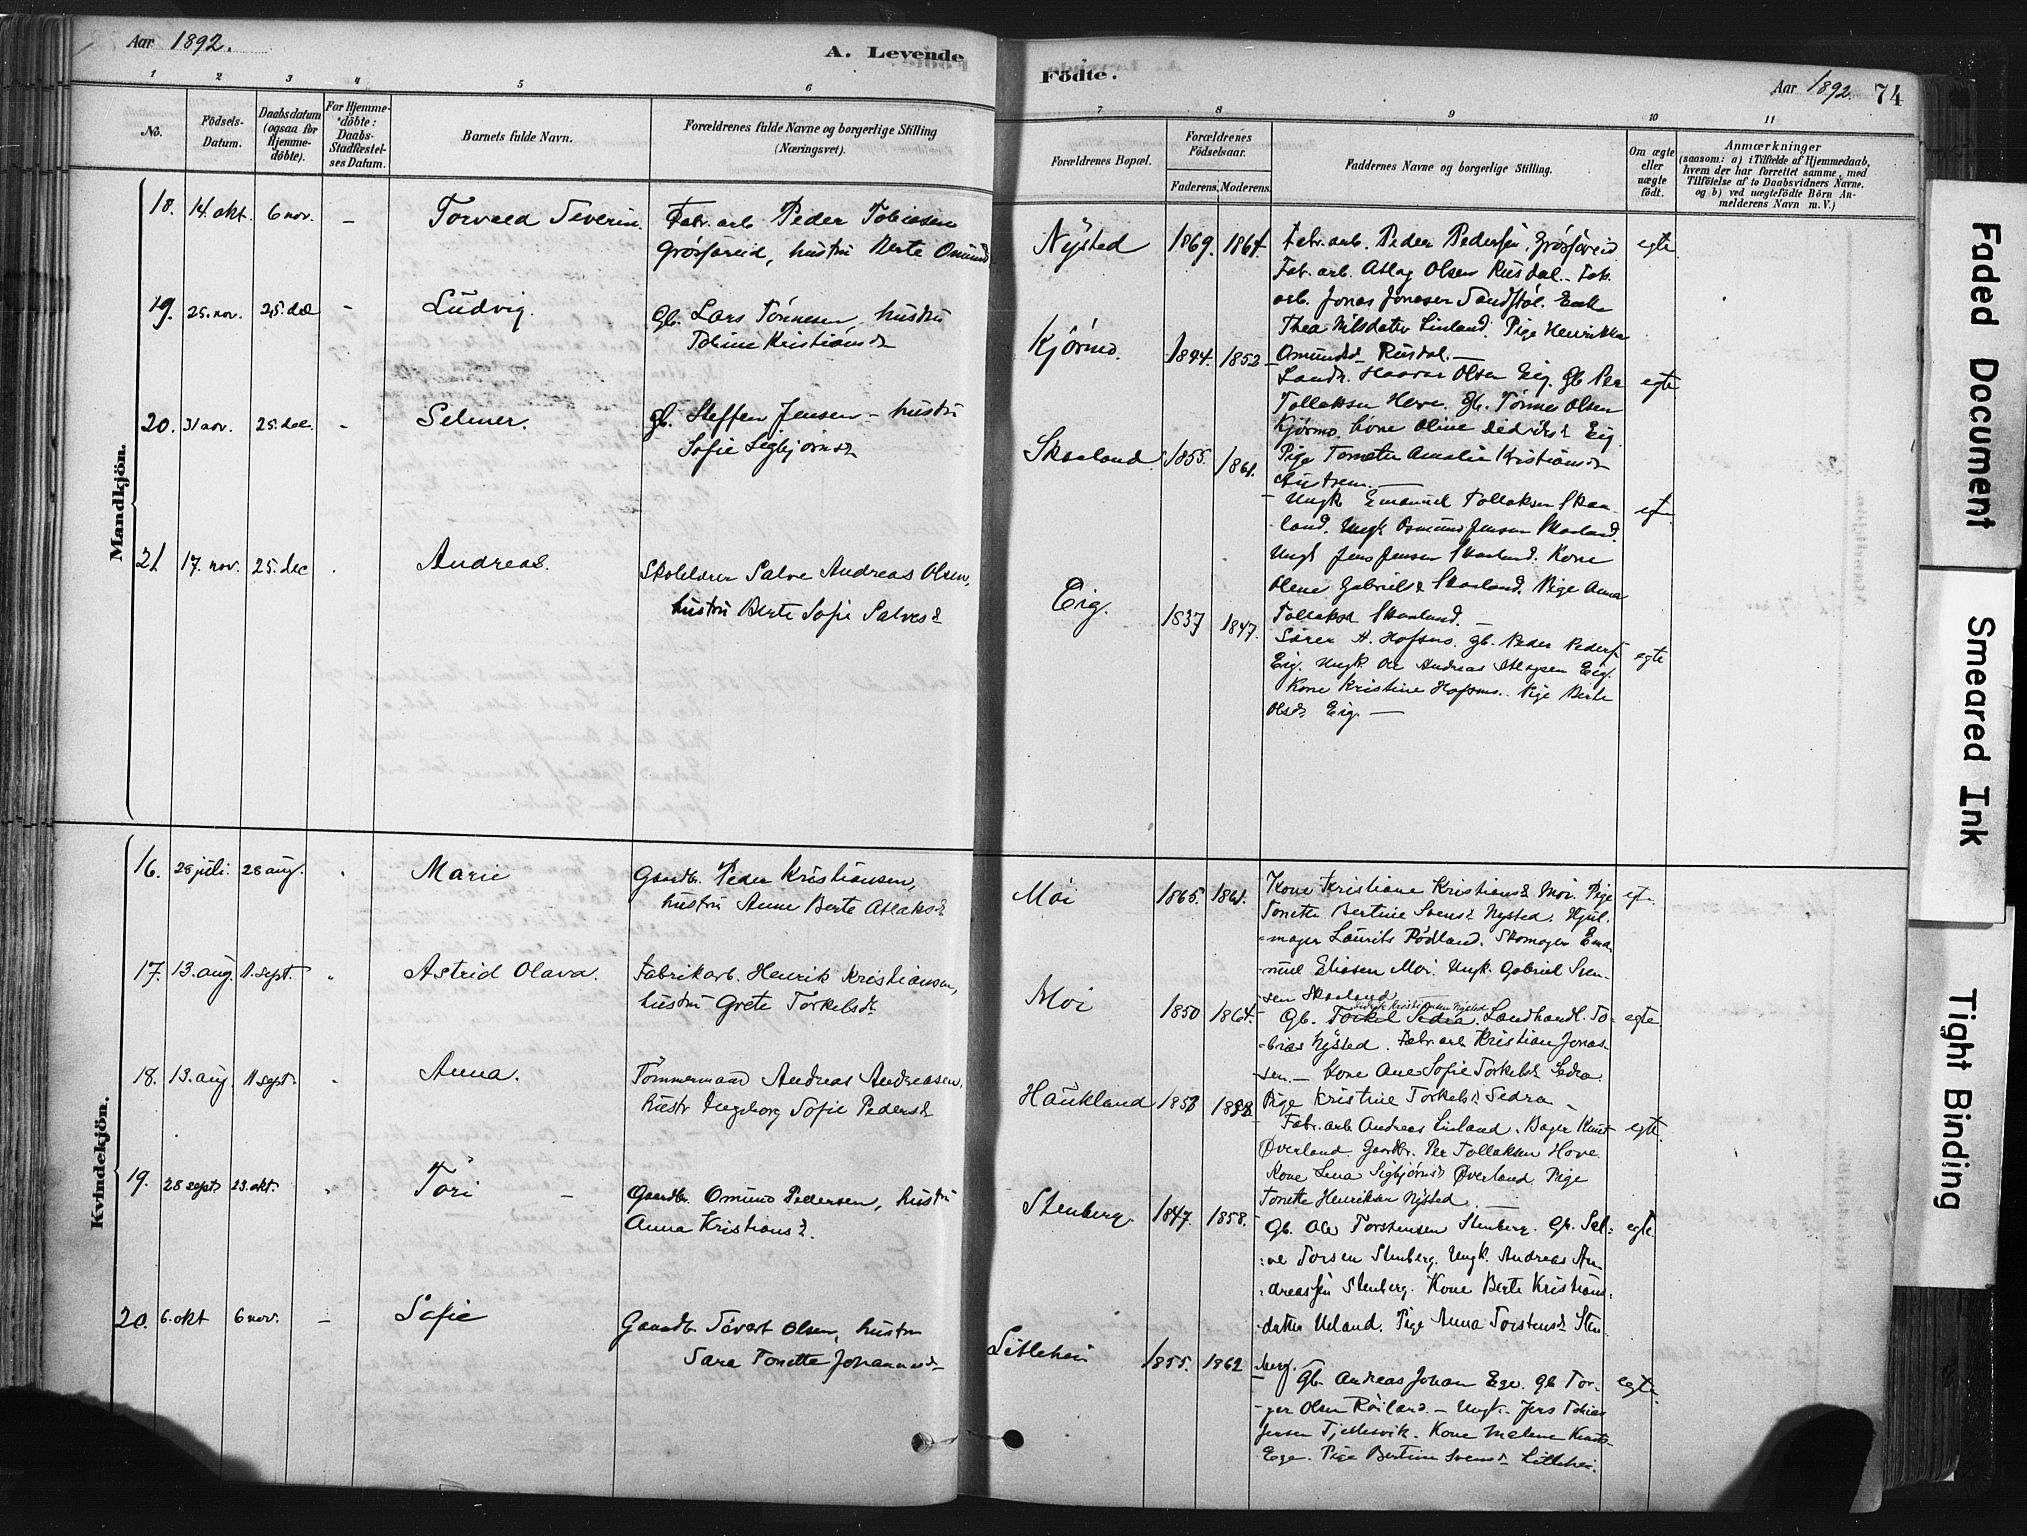 Aar 1892.
A. Levende
Födte.
Aar 1892.
74
1 2 3 4 5 6
7 8 9 10 11
No.
Födsels-
Datum.
Daabsdatum
(ogsaa for
Hjemme-
döbte).
For Hjemme-
döbte:
Daabs-
Stadfæstel-
ses Datum.
Barnets fulde Navn.
Forældrenes fulde Navne og borgerlige Stilling
(Næringsvei).
Forældrenes Bopæl.
Forældrenes
Födselsaar.
Faderens. Moderens.
Faddernes Navne og borgerlige Stilling.
Om ægte
eller
uægte
födt.
Anmærkninger
(saasom: a) i Tilfælde af Hjemmedaab,
hvem der har forrettet samme, med
Tilföielse af to Daabsvidners Navne,
og b) ved uægtefödte Börn An-
melderens Navn m. V.)
Mandkjön.
18. 14. okt. 6 nov. – Torvald Severin. Fabr. arb. Peder Tobiasen
Grøsføreid, hustru Berte Omund
Nysted 1869. 1864.
Fabr. arb. Peder Pedersen, Grøsføreid
Fab. arb. Atlag Olsen Rusdal. Fab.
arb. Jonas Jonasen Sandstøl. Enke
Thea Nilsdatter Linland. Pige Henrikka
Omundsd Rusdal. –
egte
19. 25. nov. 25. dec – Ludvig. Gb. Lars Tønnesen, hustru
Tobine Kristiansd
Kjørmo. 1844. 1852
Landh. Haavar Olsen Eig. Gb. Per
Tollaksen Hove. Gb. Tønnes Olsen
Kjørmo. Kone Oline Didriksd Eig.
Pige Tonette Amalie Kristiansd
Austrem. –
egte
20. 31 nov. 25. dec. – Selmer. Gb. Steffen Jensen – hustru
Sofie Sigbjørnsd
Skaaland 1855. 1861.
Ungk Emanuel Tollaksen Skaa-
land. Ungk Osmund Jensen Skaaland.
Ungk Jens Jensen Skaaland. Kone
Olene Gabrielsd Skaaland. Pige Anna
Tollaksd Skaaland. –
egte
21 17. nov. 25. dec . Andreas. Skolelærer Salve Andreas Olsen,
hustru Berte Sofie Salvesd
Eig. 1837 1847.
Sører A. Hofsmo. gb. Peder Peders.
Eig. Ungk. Ole Andreas Atlagsen Eig.
Kone Kristine Hofsmo. Pige Berte
Olsd. Eig. –
egte
Kvindekjön.
16. 28 juli. 28 aug. Marie Gaardbr. Peder Kristiansen,
hustru Anne Berte Atlaksd
Moi 1865. 1861.
Kone Kristiane Kristiansd Moi. Pige
Tonette Bertine Svensd Nysted. Hjul-
mager Laurits Rødland. Skomager Ema-
nuel Eliasen Moi. Ungk. Gabriel Sven-
sen Skaaland
17. 13. aug. 11. sept. Astrid Olava. Fabrikarb. Henrik Kristiansen,
hustru Grete Torkelsd
Moi 1850 1864.
Kristiansen Nysted
Gb. Torkel Sedra. Landhandl. To-
bias Nysted. Fabr. arb Kristian Jonas-
sen. – Kone Ane Sofie Torkelsd Sedra.
Pige Kristine Torkelsd Sedra –
egte
18. 13. aug. 11 sept. Anna. Tømmermand Andreas Andreasen,
hustr Ingeborg Sofie Pedersd
Haukland 1858
Fabr. arb Andreas Linland. Bager Knut
Øverland. Gaardbr. Per Tollaksen Hove.
Kone Lena Sigbjørnsd Øverland. Pige
Tonette Henriksen Nysted –
egte.
19. 28 sept 23. okt. Tori – Gaardbr. Omund Pedersen, hustru
Anna Kristiansd.
Stenberg. 1847. 1858.
Gb. Ole Torstensen Stenberg. Gb. Sal-
ve Torsen Stenberg. Ungk. Andreas An-
dreassen Stenberg. Kone Berte Kristians-
datter Ueland. Pige Anna Torstensd Sten-
berg.
egte.
20. 6. okt 6 nov. – Sofie Gaardb. Sivert Olsen, hustru
Sara Tonette Johannesd
Litlehei 1855. 1862
Gb. Andreas Johan Ege. Gb Tor-
ger Olsen Røiland. – Ungk. Jens Tobias
Jensen Tjellesvik. Kone Malene Knuts-
Ege. Pige Bertine Svensd Litlehei.
egte.
Faded Document
Smeared Ink
Tight Binding